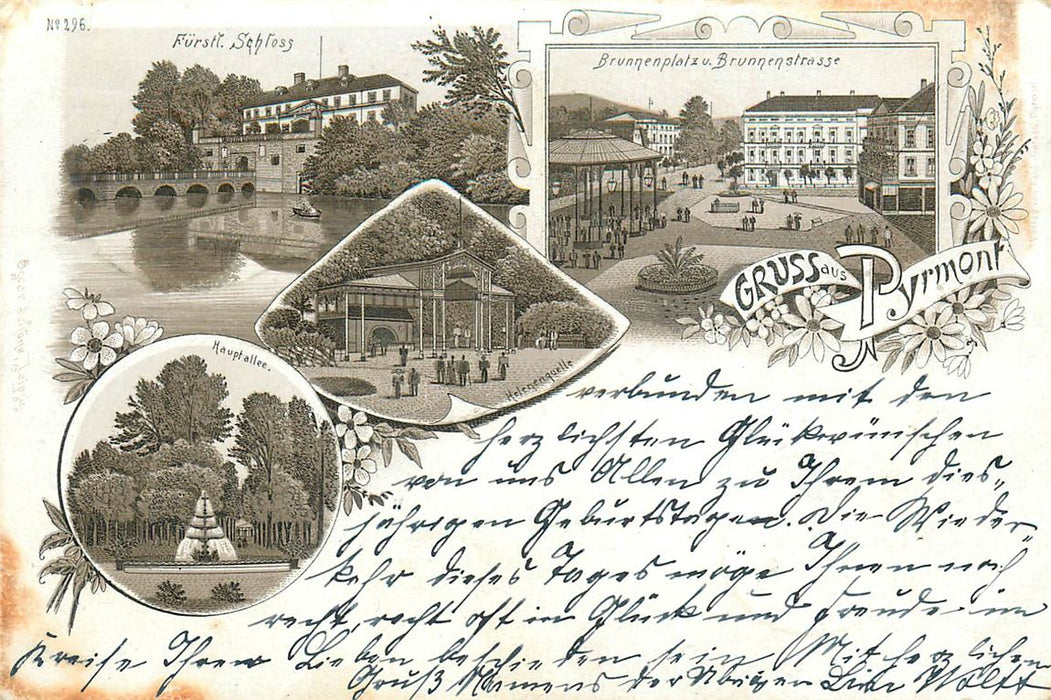 No 296.
Fürstl. Schloss
Brunnenplatz u. Brunnenstrasse
GRUSS aus Pyrmont
Helenenquelle
Hauptallee.
verbunden mit den
herzlichsten Glückwünschen
von uns Allen zu Ihrem dies-
jährigen Geburtstagen. Die Wieder-
kehr dieses Tages möge Ihnen noch
recht, recht oft in Glück und Freude im
Kreise Ihrer Lieben beschieden sein Mit herzlichem
Gruß Namens der Übrigen